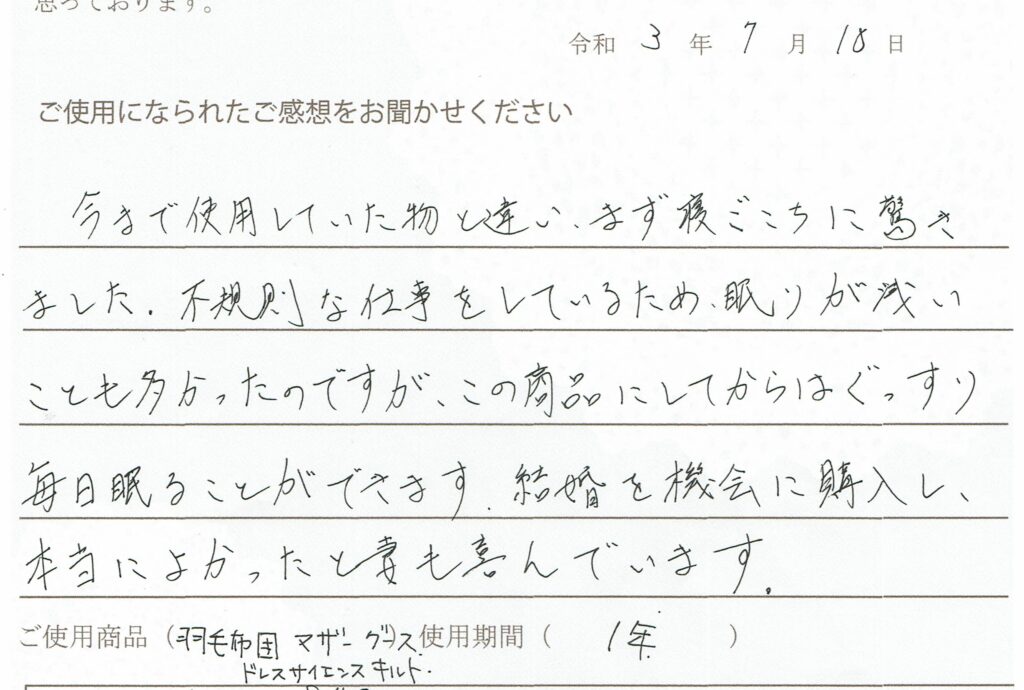 思っております。
令和 3 年 7 月 18 日
ご使用になられたご感想をお聞かせください
今まで使用していた物と違い、まず寝ごこちに驚き
ました。不規則な仕事をしているため、眠りが浅い
ことも多かったのですが、この商品にしてからはぐっすり
毎日眠ることができます。結婚を機会に購入し、
本当によかったと妻も喜んでいます。
ご使用商品（羽毛布団 マザーグース）使用期間（ 1年 ）
ドレスサイエンスキルト.